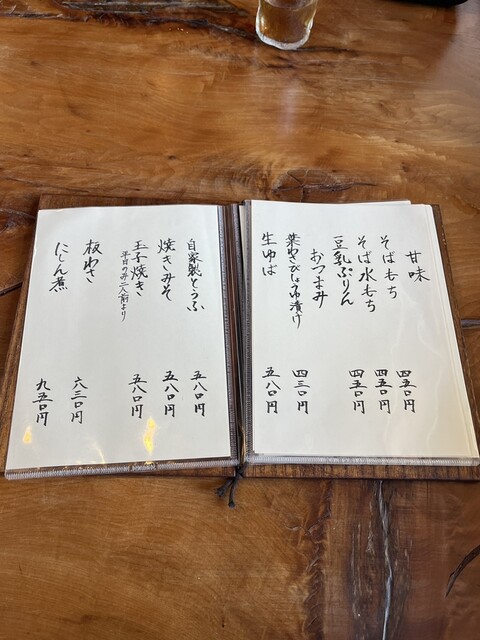 甘味
そばもち 四五〇円
そば水もち 四五〇円
豆乳ぷりん 四五〇円
おつまみ
葉わさびしょうゆ漬け 四三〇円
生ゆば 五八〇円
自家製とうふ 五八〇円
焼きみそ 五八〇円
玉子焼き 五八〇円
平日のみ二人前より
板わさ 六三〇円
にしん煮 九五〇円